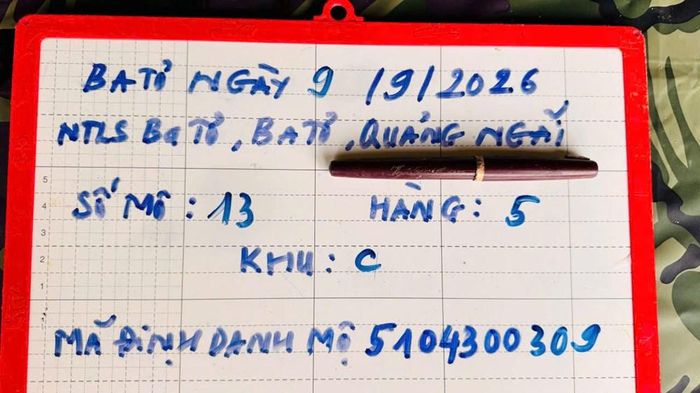 BA TƠ NGÀY 9 /9/2026
NTLS BA TƠ, BA TƠ, QUẢNG NGÃI
SỐ MỘ: 13 HÀNG: 5
KHU: C
MÃ ĐỊNH DANH MỘ 5104300309